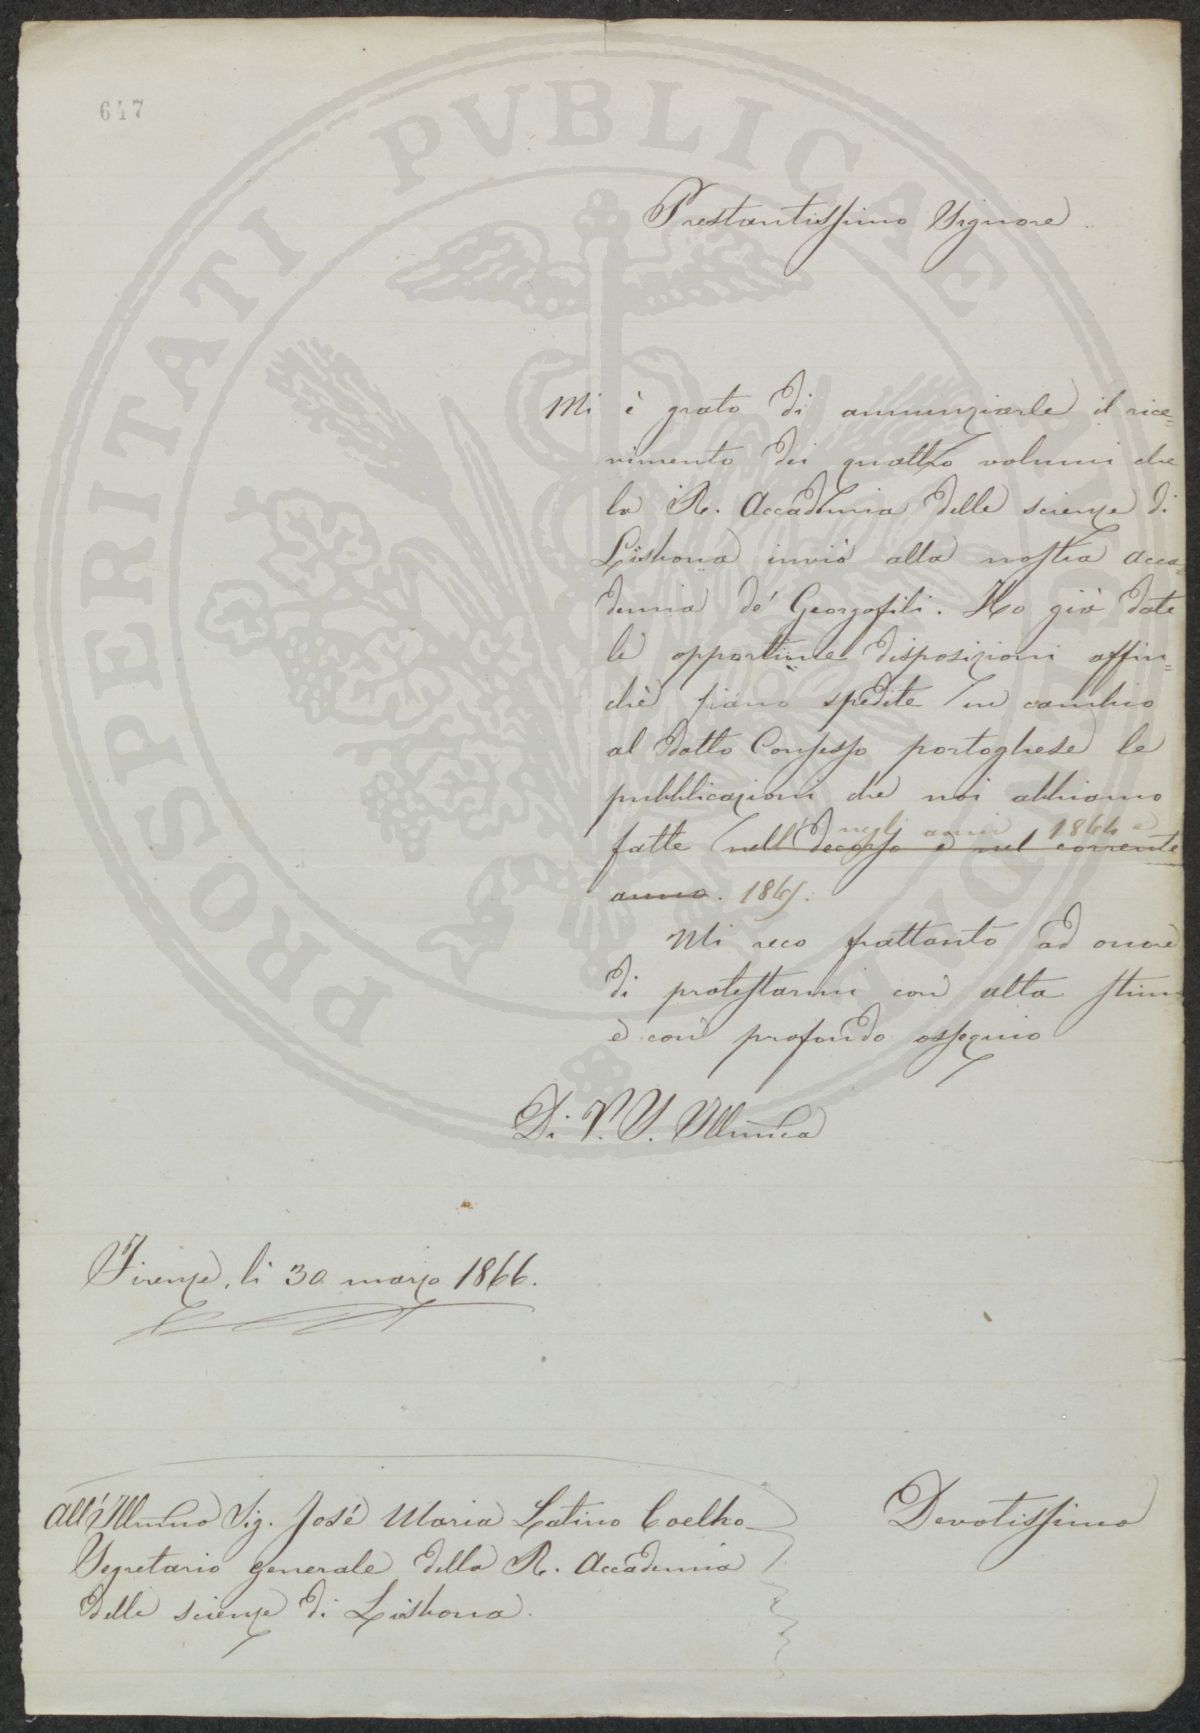 PROSPERITATI PVBLICAE AVGENDAE
647
Prestantissimo Signore
Mi è grato di annunziarle il rice=
vimento dei quattro volumi che
la R. Accademia delle scienze di
Lisbona inviò alla nostra acca=
demia de' Georgofili. Ho già date
le opportune disposizioni affin=
chè siano spedite in cambio
al dotto Consesso portoghese le
pubblicazioni che noi abbiamo
negli anni 1864 e
fatte nell'decorso e nel corrente
anno. 1865.
Mi reco frattanto ad onore
di protestarmi con alta stima
e con profondo ossequio
Di V. S. Illma
Firenze, li 30 marzo 1866.
All'Illmo Sig. José Maria Latino Coelho
Segretario generale della R. Accademia
delle scienze di Lisbona.
Devotissimo